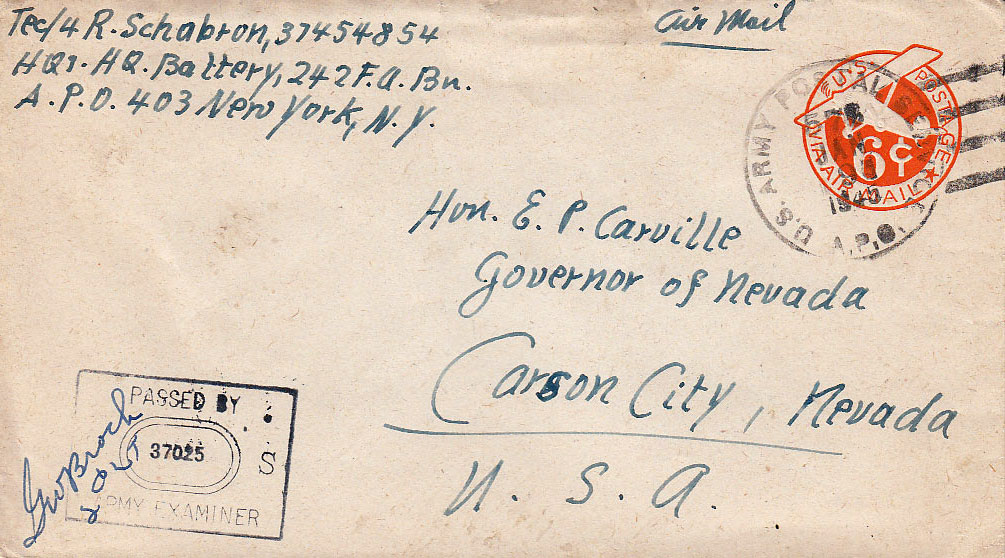 Tec/4 R. Schabron, 37454854
HQ1. HQ. Battery, 242 F.A. Bn.
A.P.O. 403 New York, N.Y.
Air Mail
U.S. POSTAGE
VIA AIR MAIL
6¢
U.S. ARMY POSTAL SERVICE
A.P.O.
Hon. E. P. Carville
Governor of Nevada
Carson City, Nevada
U. S. A.
PASSED BY
37025
S
ARMY EXAMINER